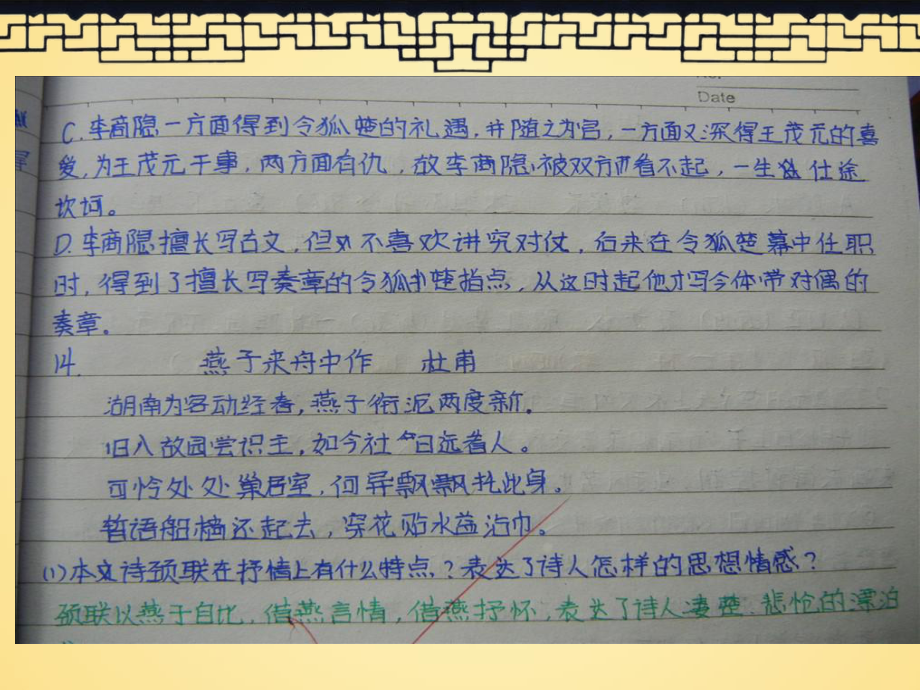 Date
C.李商隐一方面得到令狐楚的礼遇，并随之为官，一方面又深得王茂元的喜
爱，为王茂元干事，两方面有仇，故李商隐被双方而看不起，一生仕途
坎坷。
D.李商隐擅长写古文，但不喜欢讲究对仗，后来在令狐楚幕中任职
时，得到了擅长写奏章的令狐楚指点，从这时起他才写今体带对偶的
奏章。
14. 燕子来舟中作 杜甫
湖南为客动经春，燕子衔泥两度新。
旧入故园尝识主，如今社日远看人。
可怜处处巢居室，何异飘飘托此身。
暂语船樯还起去，穿花贴水益沾巾。
(1)本文诗颈联在抒情上有什么特点？表达了诗人怎样的思想情感？
颈联以燕子自比，借燕言情，借燕抒怀，表达了诗人凄楚、悲怆的漂泊